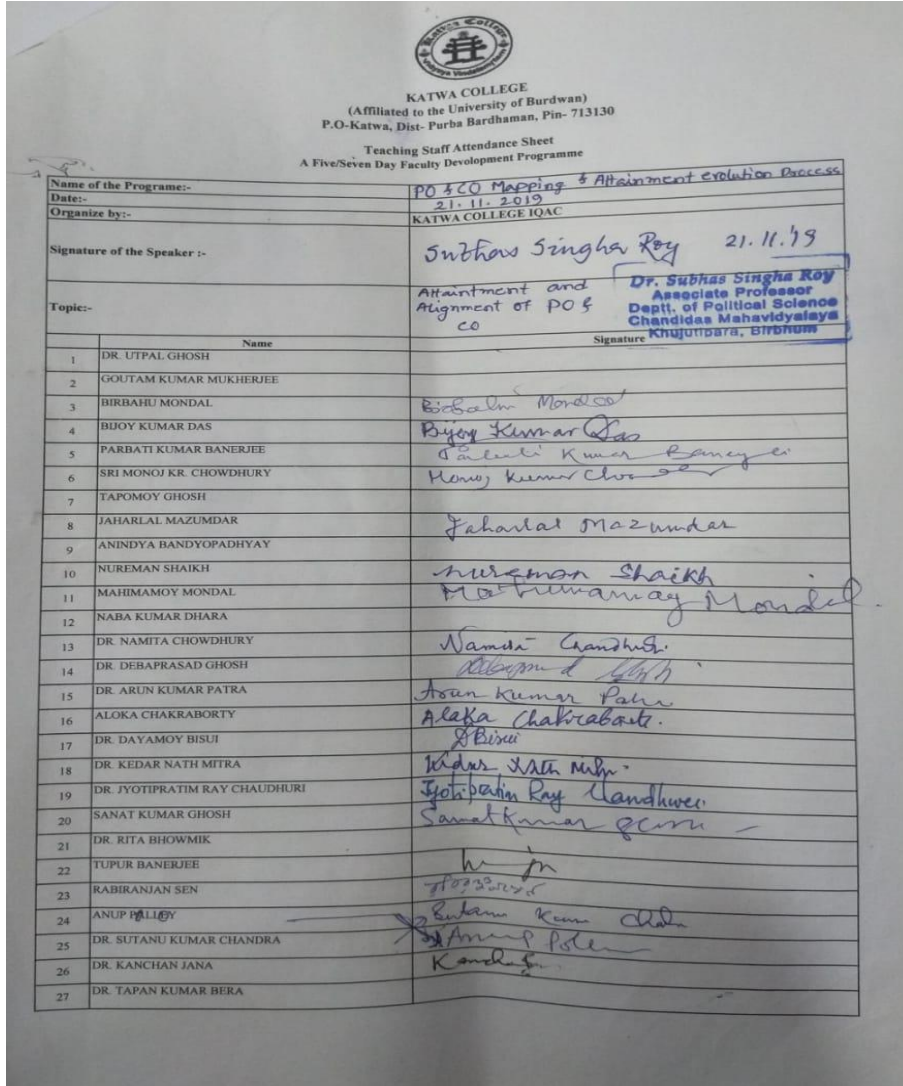 Katwa College
KATWA COLLEGE
(Affiliated to the University of Burdwan)
P.O-Katwa, Dist- Purba Bardhaman, Pin- 713130
Teaching Staff Attendance Sheet
A Five/Seven Day Faculty Devolopment Programme
Name of the Programe:- PO & CO Mapping & Attainment evolution Process
Date:- 21.11.2019
Organize by:- KATWA COLLEGE IQAC
Signature of the Speaker :- Subhas Singha Roy 21.11.'19
Topic:- Attaintment and Alignment of PO & CO
Dr. Subhas Singha Roy
Associate Professor
Deptt. of Political Science
Chandidas Mahavidyalaya
Khujutipara, Birbhum
Name Signature
1 DR. UTPAL GHOSH
2 GOUTAM KUMAR MUKHERJEE
3 BIRBAHU MONDAL Mondal
4 BIJOY KUMAR DAS Bijoy Kumar Das
5 PARBATI KUMAR BANERJEE Kumar
6 SRI MONOJ KR. CHOWDHURY Monoj Kumar
7 TAPOMOY GHOSH
8 JAHARLAL MAZUMDAR Jaharlal Mazumdar
9 ANINDYA BANDYOPADHYAY
10 NUREMAN SHAIKH Nureman Shaikh
11 MAHIMAMOY MONDAL Mondal
12 NABA KUMAR DHARA
13 DR. NAMITA CHOWDHURY Namita
14 DR. DEBAPRASAD GHOSH
15 DR. ARUN KUMAR PATRA Arun Kumar Patra
16 ALOKA CHAKRABORTY Alaka
17 DR. DAYAMOY BISUI DBisui
18 DR. KEDAR NATH MITRA Nath
19 DR. JYOTIPRATIM RAY CHAUDHURI Jyotipratim Ray
20 SANAT KUMAR GHOSH Sanat Kumar
21 DR. RITA BHOWMIK
22 TUPUR BANERJEE
23 RABIRANJAN SEN
24 ANUP
25 DR. SUTANU KUMAR CHANDRA Anup
26 DR. KANCHAN JANA
27 DR. TAPAN KUMAR BERA